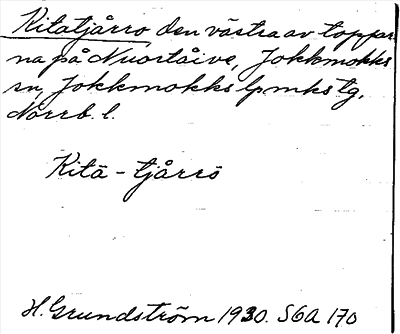 Kitatjårro den västra av toppar-
na på Nuortåive, Jokkmokks
sn, Jokkmokks lpmks tg,
Norrb. l.
Kitā - tjårrō
H. Grundström 1930. SGA 170